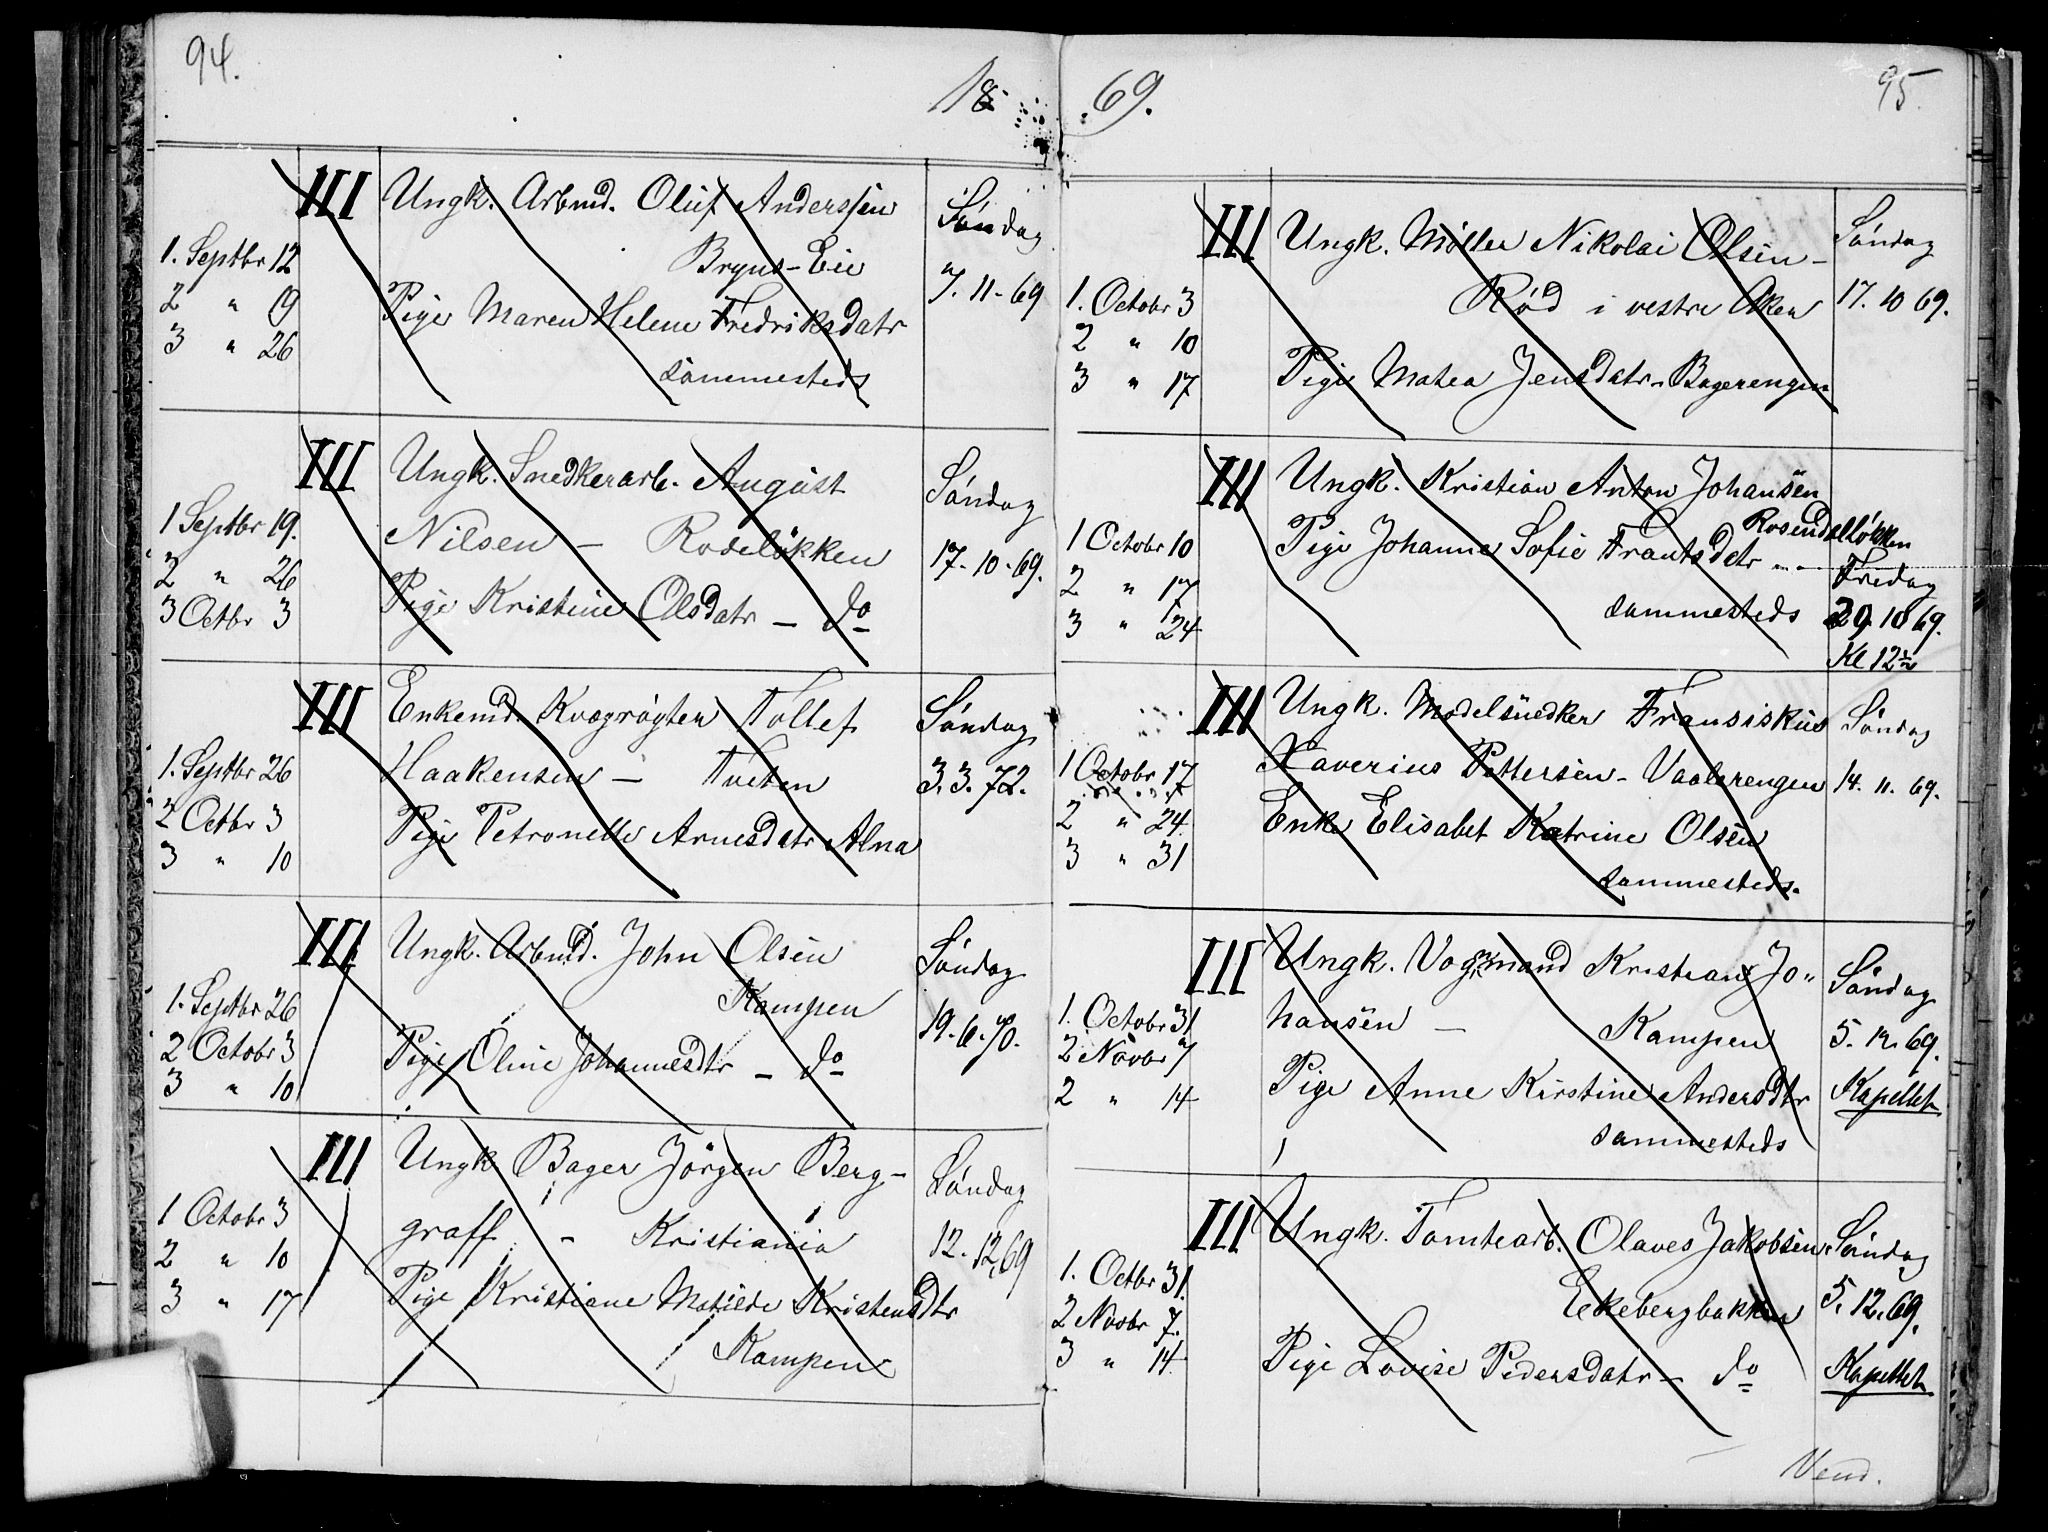 94.
18
III Ungk. Arbmd. Oluf Anderssen Söndag
Bryns-Eie
1. Septbr 12
7. 11-69
2 " 19 Pige Maren Helene Fredriksdatr
3 " 26
sammesteds
III Ungk. Snedkerarb. August Söndag
1 Septbr 19. Nilsen — Rodelökken
17-10-69.
2 " 26
3 Octbr 3 Pige Kristine Olsdatr — do
III Enkemd. Kvægrögter Tollef Söndag
1. Septbr 26 Haakensen — Tveten 3.3.72.
2 Octbr 3
3 " 10 Pige Petronelle Arnesdatr Alna
III Ungk. Arbmd. John Olsen Söndag
1. Septbr 26 Kampen 19.6.70.
2 Octobr 3 Pige Oline Johannesdtr — do
3 " 10
III Ungk. Bager Jörgen Berg- Söndag
1 Octobr 3 graff - Kristiania 12.12.69
2 " 10
3 " 17 Pige Kristiane Matilde Kristensdtr
Kampen
69.
95.
III Ungk. Möller Nikolai Olsen - Söndag
1. Octobr 3 Röd i vestre Aker 17. 10 69.
2 " 10
3 " 17 Pige Matea Jensdatr - Bagerengen
III Ungk. Kristian Anton Johansen
Rosendallökken
1 Octobr 10 Pige Johanne Sofie Frantsdatr - - Fredag
2 " 17
3 " 24 sammesteds 29. 10 69.
Kl 12½
III Ungk. Modelsnedker Fransiskus Söndag
1 Octobr 17 Xaverius Pettersen - Vaalerengen 14. 11. 69.
2 " 24 Enke Elisabet Katrine Olsen
3 " 31
sammesteds.
III Ungk. Vognmand Kristian Jo- Söndag
1. Octobr 31. hansen — Kampen 5. 12. 69.
2 Novbr 7
2 " 14 Pige Anne Kirstine Andersdtr Kapellet
sammesteds
III Ungk. Tomtearb. Olaves Jakobsen Söndag
1. Octbr 31. Eekebergbakken 5. 12. 69.
2 Novbr 7.
3 " 14. Pige Lovise Pedersdatr — do Kapellet
Vend.